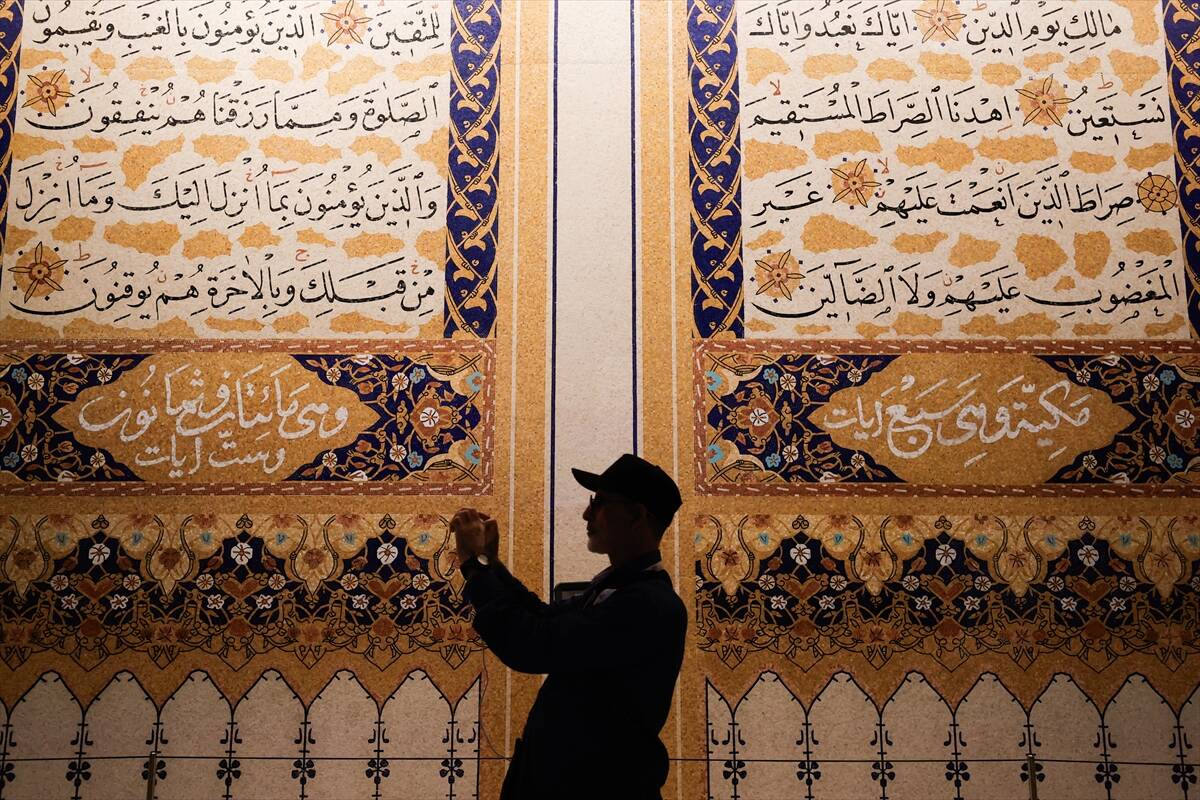 مَالِكِ يَوْمِ الدِّينِ اِيَّاكَ نَعْبُدُ وَاِيَّاكَ
نَسْتَعِينُ اِهْدِنَا الصِّرَاطَ الْمُسْتَقِيمَ
صِرَاطَ الَّذِينَ اَنْعَمْتَ عَلَيْهِمْ غَيْرِ
الْمَغْضُوبِ عَلَيْهِمْ وَلَا الضَّالِّينَ
مَكِّيَّةٌ وَهِيَ سَبْعُ اٰيَاتٍ
لِلْمُتَّقِينَ الَّذِينَ يُؤْمِنُونَ بِالْغَيْبِ وَيُقِيمُونَ
الصَّلٰوةَ وَمِمَّا رَزَقْنَاهُمْ يُنْفِقُونَ
وَالَّذِينَ يُؤْمِنُونَ بِمَا اُنْزِلَ اِلَيْكَ وَمَا اُنْزِلَ
مِنْ قَبْلِكَ وَبِالْاٰخِرَةِ هُمْ يُوقِنُونَ
وَهِيَ مِائَتَانِ وَثَمَانُونَ
وَسِتُّ اٰيَاتٍ